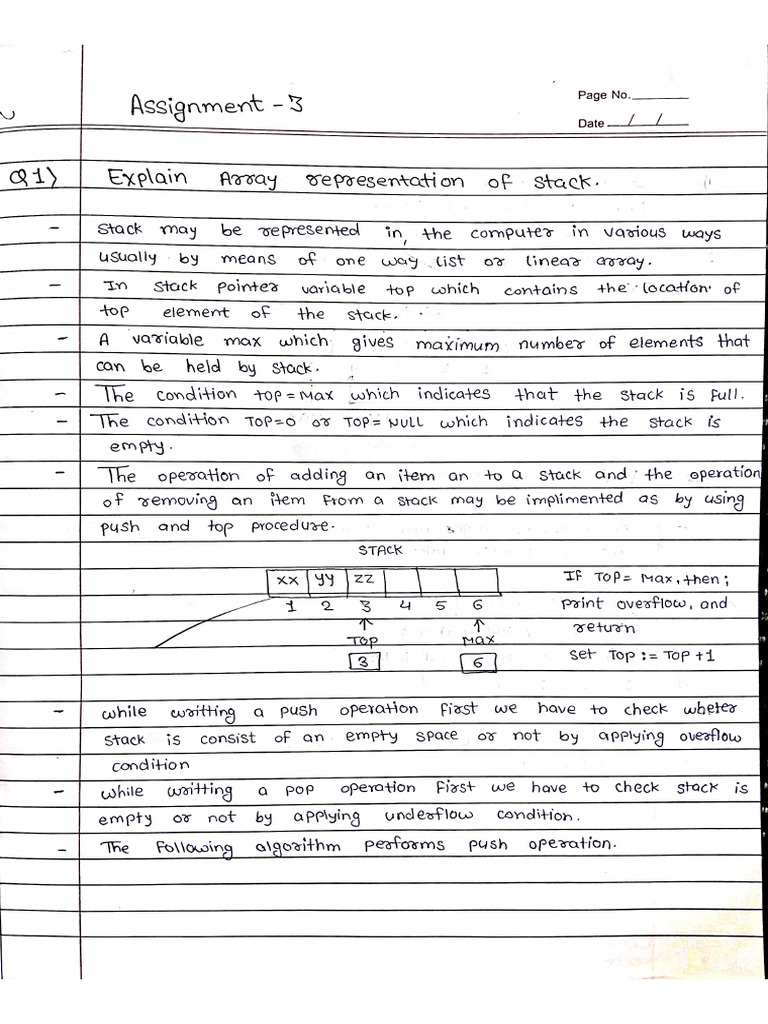 Assignment - 3
Page No.
Date / /
Q1) Explain Array representation of stack.
- Stack may be represented in, the computer in various ways
usually by means of one way list or linear array.
- In stack pointer variable top which contains the location of
top element of the stack.
- A variable max which gives maximum number of elements that
can be held by stack.
- The condition top = Max which indicates that the stack is full.
- The condition TOP=0 or TOP= NULL which indicates the stack is
empty.
- The operation of adding an item an to a stack and the operation
of removing an item from a stack may be implimented as by using
push and top procedure.
STACK
xx yy zz
1 2 3 4 5 6
↑ ↑
TOP Max
3 6
If TOP = Max, then;
print overflow, and
return
set TOP := TOP +1
- while writting a push operation first we have to check wheter
stack is consist of an empty space or not by applying overflow
condition
- while writting a pop operation first we have to check stack is
empty or not by applying underflow condition.
- The following algorithm performs push operation.